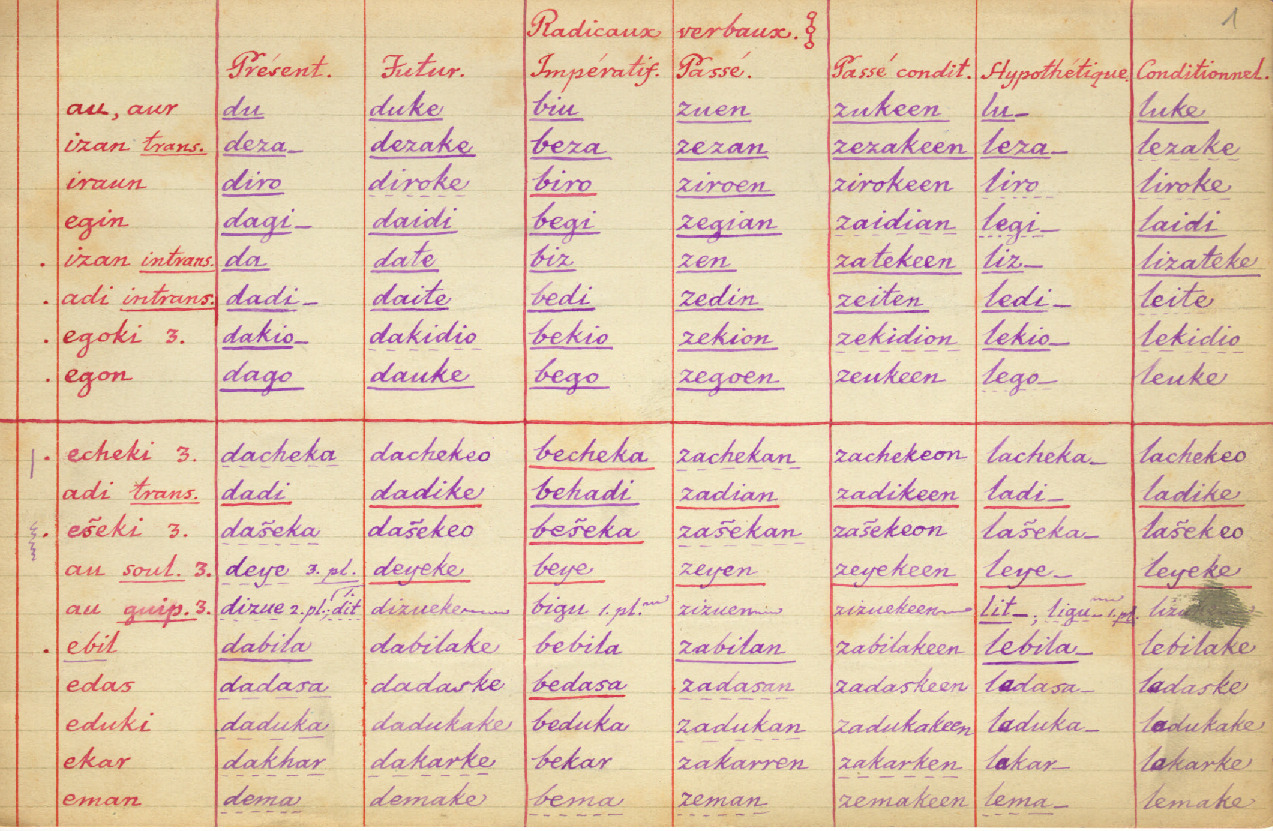 1
Radicaux verbaux.
Présent. Futur. Impératif. Passé. Passé condit. Hypothétique. Conditionnel.
au, aur du duke biu zuen zukeen lu_ luke
izan trans. deza_ dezake beza zezan zezakeen leza_ lezake
iraun diro diroke biro ziroen zirokeen liro liroke
egin dagi_ daidi begi zegian zaidian legi_ laidi
. izan intrans. da date biz zen zatekeen liz_ lizateke
. adi intrans. dadi_ daite bedi zedin zeiten ledi_ leite
. egoki 3. dakio_ dakidio bekio zekion zekidion lekio_ lekidio
. egon dago dauke bego zegoen zeukeen lego_ leuke
. echeki 3. dacheka dachekeo becheka zachekan zachekeon lacheka_ lachekeo
adi trans. dadi dadike behadi zadian zadikeen ladi_ ladike
. ešeki 3. dašeka dašekeo bešeka zašekan zašekeon lašeka_ lašekeo
au soul. 3. deye 3. pl. deyeke beye zeyen zeyekeen leye_ leyeke
au guip. 3. dizue 2. pl.; dit dizueke bigu 1. pl. zizuen zizuekeen lit_, ligu_ 1. pl.
. ebil dabila dabilake bebila zabilan zabilakeen lebila_ lebilake
edas dadasa dadaske bedasa zadasan zadaskeen ladasa_ ladaske
eduki daduka dadukake beduka zadukan zadukakeen laduka_ ladukake
ekar dakhar dakarke bekar zakarren zakarken lakar_ lakarke
eman dema demake bema zeman zemakeen lema_ lemake